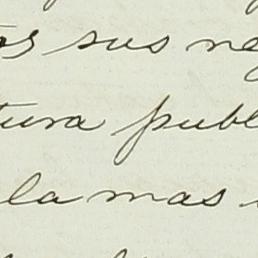 os sus ne
tura publ
la mas